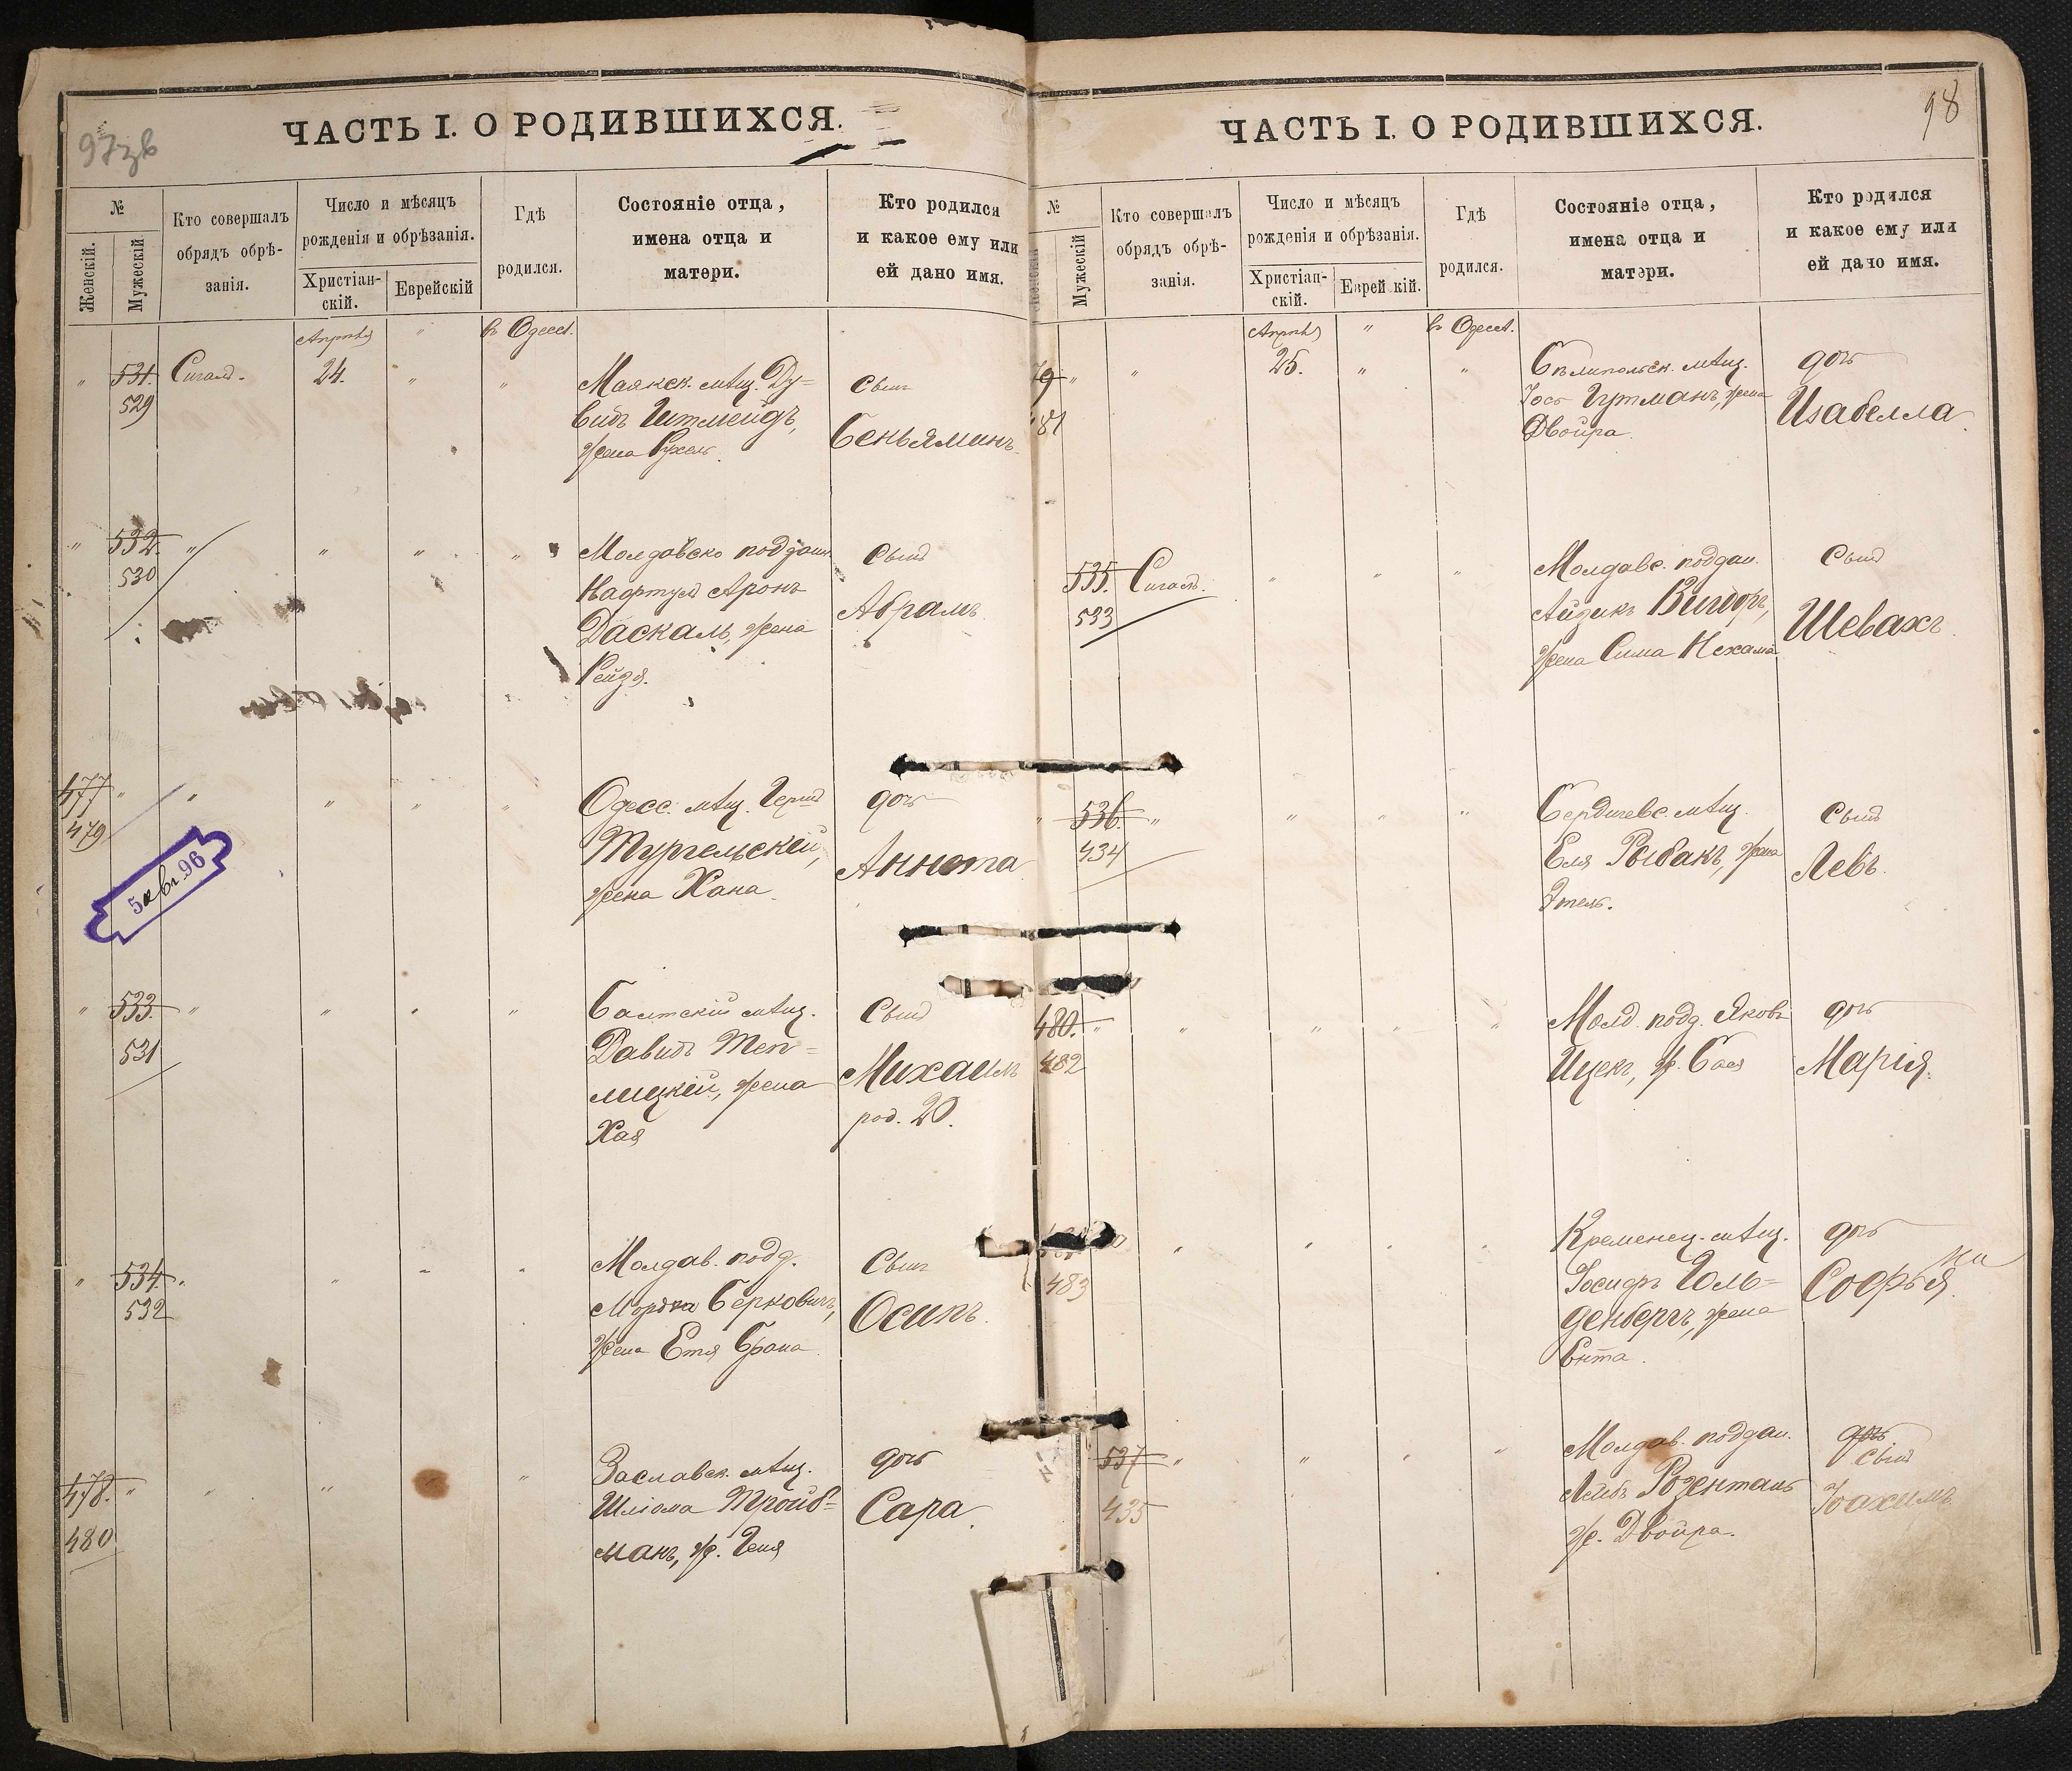 97 зв
ЧАСТЬ I. О РОДИВШИХСЯ.
№
Женскій.
Мужескій
Кто совершалъ
обрядъ обрѣ-
занія.
Число и мѣсяцъ
рожденія и обрѣзанія.
Христіан-
скій.
Еврейскій
Гдѣ
родился.
Состояніе отца,
имена отца и
матери.
Кто родился
и какое ему или
ей дано имя.
Апрѣль " въ Одессѣ.
" 531. Сигалъ. 24. " "
529
Маякск. мѣщ. Ду=
видъ Штмейдъ,
жена Рухель.
сынъ
Беньяминъ.
" 532. " " " "
530
Молдавско поддан.
Нафтулъ Аронъ
Даскалъ, жена
Рейзя.
сынъ
Абрамъ.
477 " " " " "
479
5 авг. 96
Одесс. мѣщ. Гершъ
Тургельскій,
жена Хана.
дочь
Аннета
" 533. " " " "
531
Балтскій мѣщ.
Давидъ Теп=
лицкій, жена
Хая
сынъ
Михаилъ
род. 20.
" 534. " " " "
532
Молдав. подд.
Мордка Берковичъ,
жена Етя Брана.
сынъ
Осипъ.
478. " " " "
480
Заславск. мѣщ.
Шліома Тройб=
манъ, ж. Геня
дочь
Сара.
98
ЧАСТЬ I. О РОДИВШИХСЯ.
№
Мужескій
Кто совершалъ
обрядъ обрѣ-
занія.
Число и мѣсяцъ
рожденія и обрѣзанія.
Христіан-
скій.
Еврей кій.
Гдѣ
родился.
Состояніе отца,
имена отца и
матери.
Кто родился
и какое ему или
ей дано имя.
Апрѣль " въ Одессѣ.
79 " " 25. " "
81
мѣщ.
Гутманъ, жена
Двойра.
дочь
Изабелла.
535. Сигалъ. " " "
533
Молдавс. поддан.
Айзикъ
жена Сима Нехама
сынъ
Шевахъ.
" 536. " " " "
434
Бердичевс. мѣщ.
Еля Рыбакъ, жена
Этель.
сынъ
Левъ.
480. " " " " "
482
Молд. подд. Яковъ
Ицекъ, ж. Бася
дочь
Марія.
483
Кременец. мѣщ.
Іосифъ Голь=
денбергъ, жена
Ента.
дочь
Софья.
537 " " " "
435
Молдав. поддан.
Лейбъ Розенталь
ж. Двойра.
дочь
сынъ
Іоахимъ